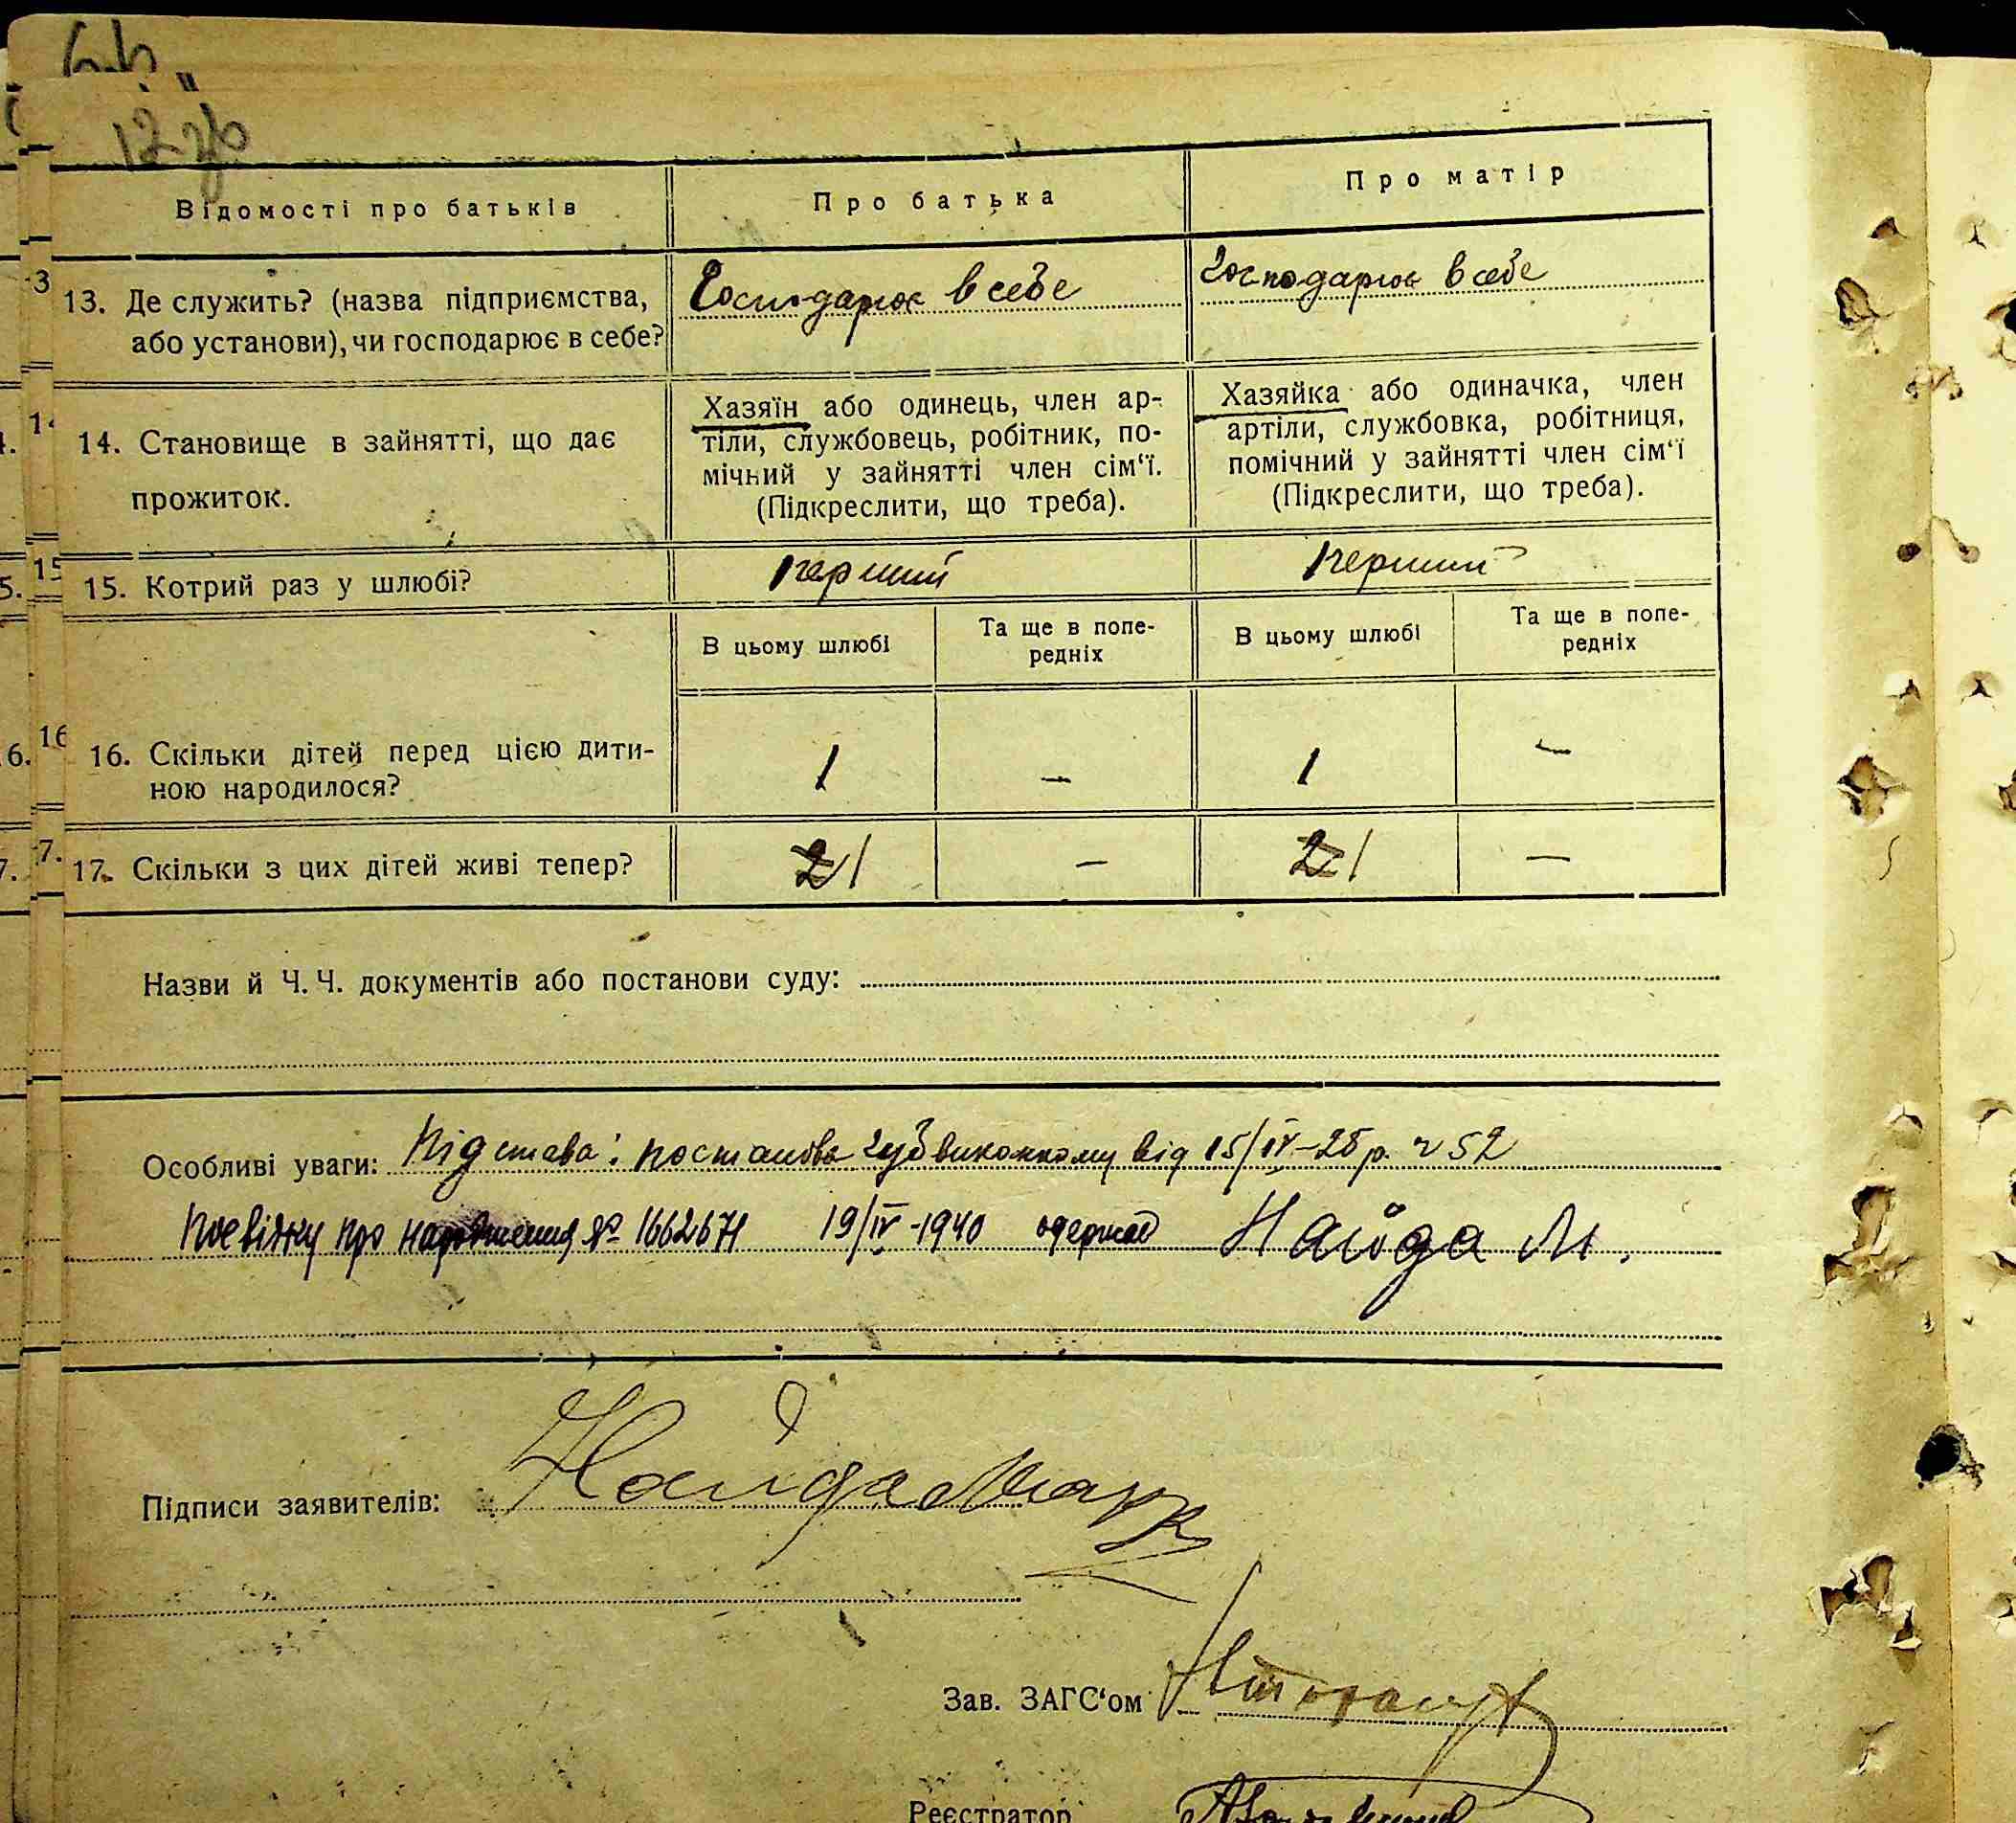 Відомості про батьків
Про батька
Про матір
13. Де служить? (назва підприємства,
або установи), чи господарює в себе?
Господарює в себе
Господарює в себе
14. Становище в зайнятті, що дає
прожиток.
Хазяїн або одинець, член ар-
тіли, службовець, робітник, по-
мічний у зайнятті член сім‘ї.
(Підкреслити, що треба).
Хазяйка або одиначка, член
артіли, службовка, робітниця,
помічний у зайнятті член сім‘ї
(Підкреслити, що треба).
15. Котрий раз у шлюбі?
перший
перший
В цьому шлюбі
Та ще в попе-
редніх
В цьому шлюбі
Та ще в попе-
редніх
16. Скільки дітей перед цією дити-
ною народилося?
1
—
1
—
17. Скільки з цих дітей живі тепер?
2 1
—
2 1
—
Назви й Ч. Ч. документів або постанови суду:
Особливі уваги: Підстава: постанова Губвиконкому від 15/IV-25 р. ч 52
про народження № 1662671 19/IV-1940 одержав Найда М.
Підписи заявителів: Найда Марк
Зав. ЗАГС‘ом
Реєстратор